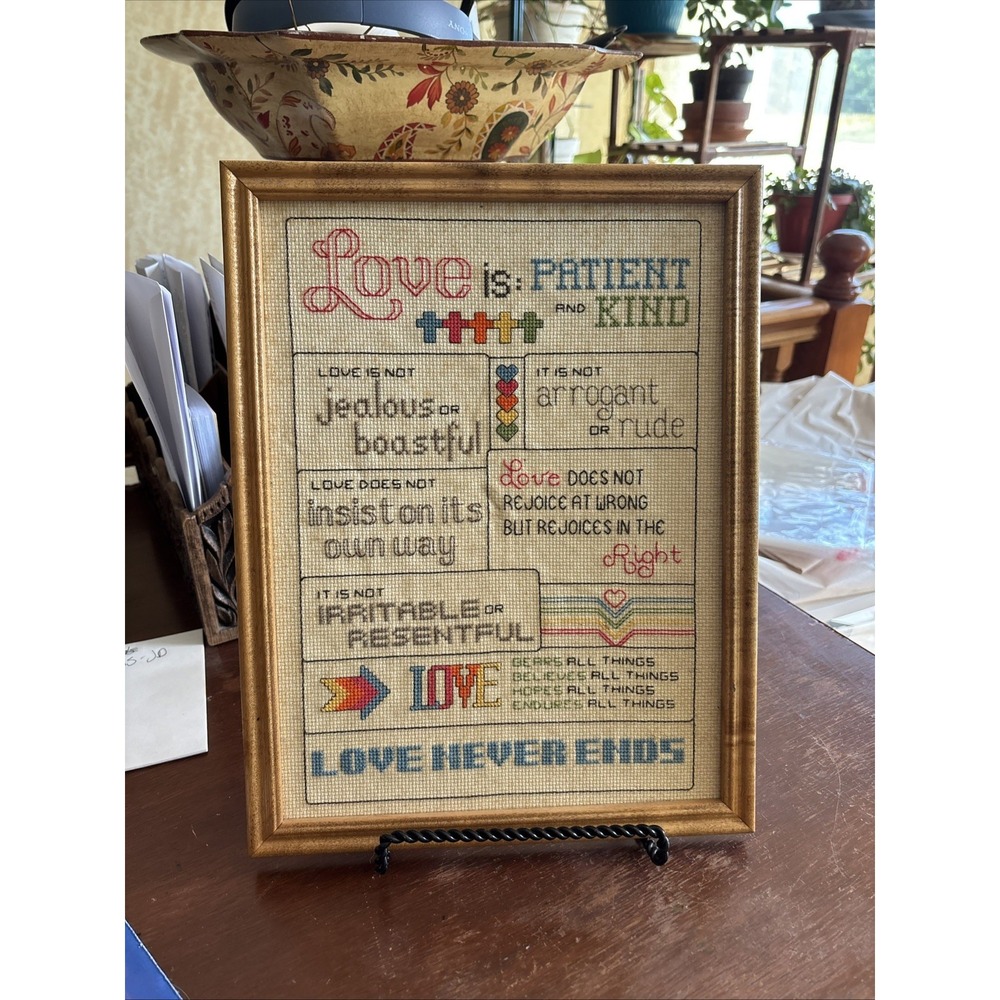 Love is: PATIENT
AND KIND
LOVE IS NOT
jealous OR
boastful
IT IS NOT
arrogant
OR rude
LOVE DOES NOT
insist on its
own way
Love DOES NOT
REJOICE AT WRONG
BUT REJOICES IN THE
Right
IT IS NOT
IRRITABLE OR
RESENTFUL
LOVE
BEARS ALL THINGS
BELIEVES ALL THINGS
HOPES ALL THINGS
ENDURES ALL THINGS
LOVE NEVER ENDS